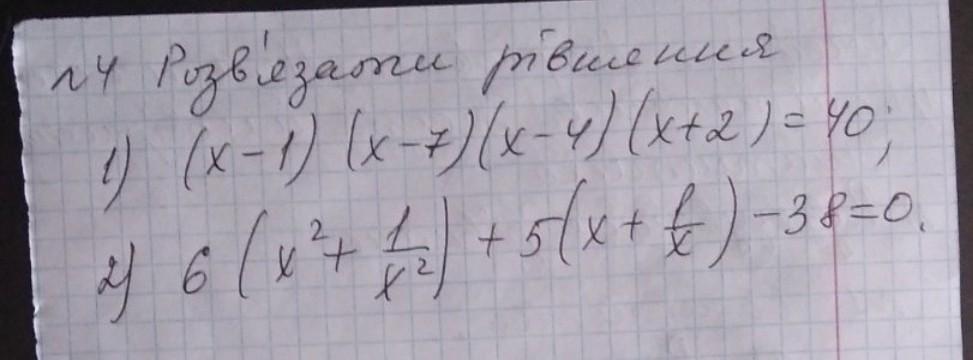 №4 Розв'язати рівняння
1) (x-1)(x-7)(x-4)(x+2)=40;
2) 6(x²+1/x²)+5(x+1/x)-38=0.